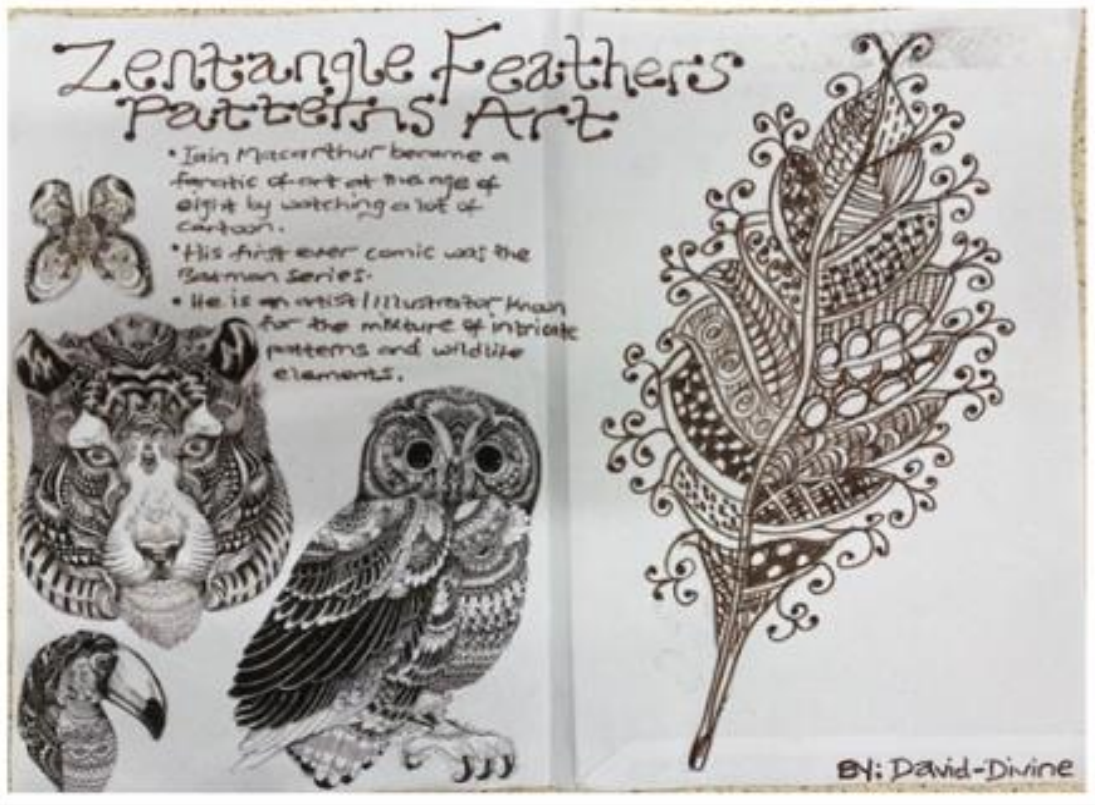 Zentangle Feathers
Patterns Art
• Iain Macarthur became a
fanatic of art at the age of
eight by watching a lot of
cartoon.
• His first ever comic was the
Batman series.
• He is an artist/Illustrator known
for the mixture of intricate
patterns and wildlife
elements.
BY: David-Divine